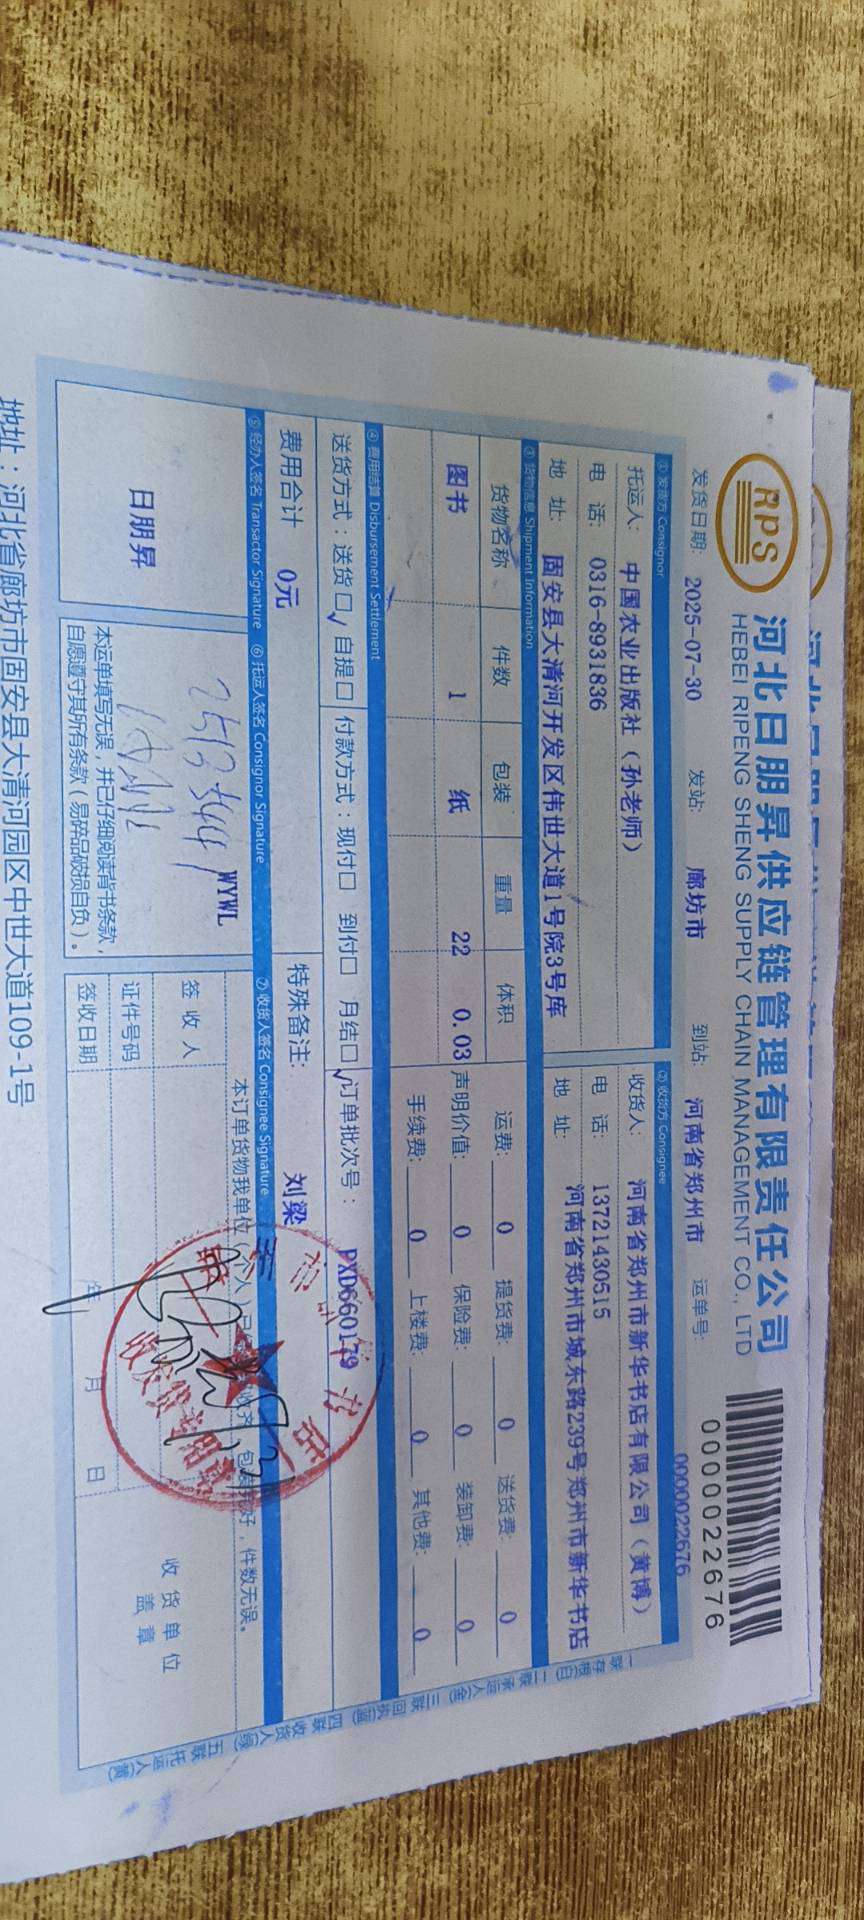 RPS
河北日朋昇供应链管理有限责任公司
HEBEI RIPENG SHENG SUPPLY CHAIN MANAGEMENT CO., LTD
0000022676
发货日期: 2025-07-30 发站: 廊坊市 到站: 河南省郑州市 运单号: 0000022676
① 发货方 Consignor ② 收货方 Consignee
托运人: 中国农业出版社（孙老师） 收货人: 河南省郑州市新华书店有限公司（黄博）
电 话: 0316-8931836 电 话: 13721430515
地 址: 固安县大清河开发区伟世大道1号院3号库 地 址: 河南省郑州市城东路239号郑州市新华书店
③ 货物信息 Shipment Information
货物名称 件数 包装 重量 体积 运费: 0 提货费: 0 送货费: 0
图书 1 纸 22 0.03 声明价值: 0 保险费: 0 装卸费: 0
手续费: 0 上楼费: 0 其他费: 0
④ 费用结算 Disbursement Settlement
送货方式：送货☐√ 自提☐ 付款方式：现付☐ 到付☐ 月结☐√ 订单批次号： PXD660179
费用合计 0元 特殊备注: 刘梁
⑤ 经办人签名 Transactor Signature ⑥ 托运人签名 Consignor Signature ⑦ 收货人签名 Consignee Signature
日朋昇
WYWL
本运单填写无误，并已仔细阅读背书条款，
自愿遵守其所有条款（易碎品破损自负）。
本订单货物我单位 个人 已 收齐，包装完好，件数无误。
签 收 人
证件号码
签收日期 年 月 日
收货单位
盖章
一联存根(白) 二联承运人(金) 三联回执(蓝) 四联收货人(绿) 五联托运人(黄)
地址：河北省廊坊市固安县大清河园区中世大道109-1号